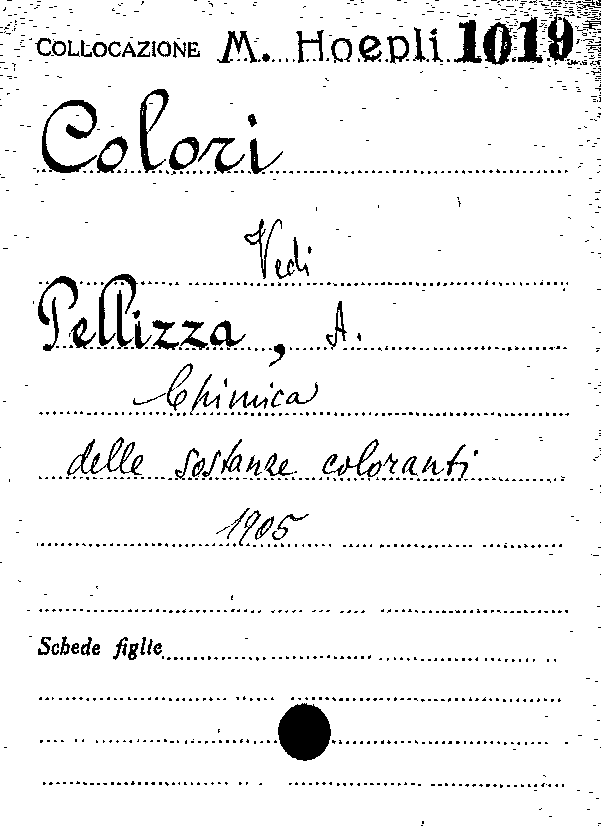 COLLOCAZIONE M. Hoepli 1019
Colori
Vedi
Pellizza, A.
Chimica
delle sostanze coloranti
1905
Schede figlie